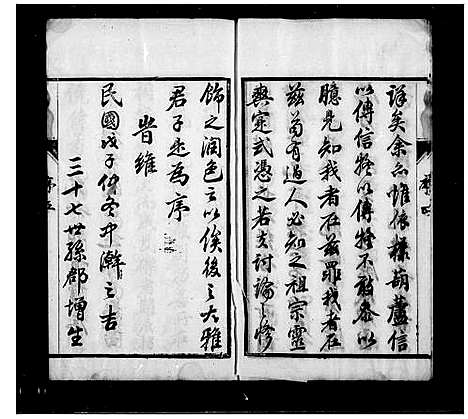 詳矣余亦惟依樣葫蘆信
以傳信疑以傳疑不敢各以
臆見知我者在茲罪我者在
茲苟有過人必知之祖宗靈
爽定式憑之若夫討論之修
飾之潤色之以俟後之大雅
君子是為序
時維
民國戊子仲冬中澣之吉
三十七世孫郡增生